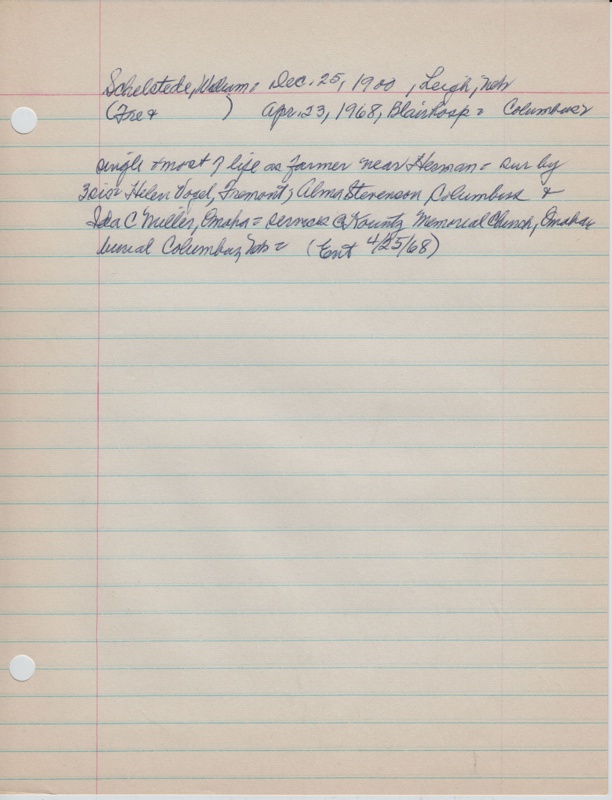 Schelstede, William = Dec. 25, 1900 , Leigh, Neb
(Fre + ) Apr. 23, 1968, Blair hosp = Columbus
single + most of life as farmer near Herman = sur by
3 sis = Helen Vogel, Fremont; Alma Stevenson, Columbus +
Ida C Miller, Omaha = services @ Kountz Memorial Church, Omaha
burial Columbus, Neb = (Ent 4/25/68)